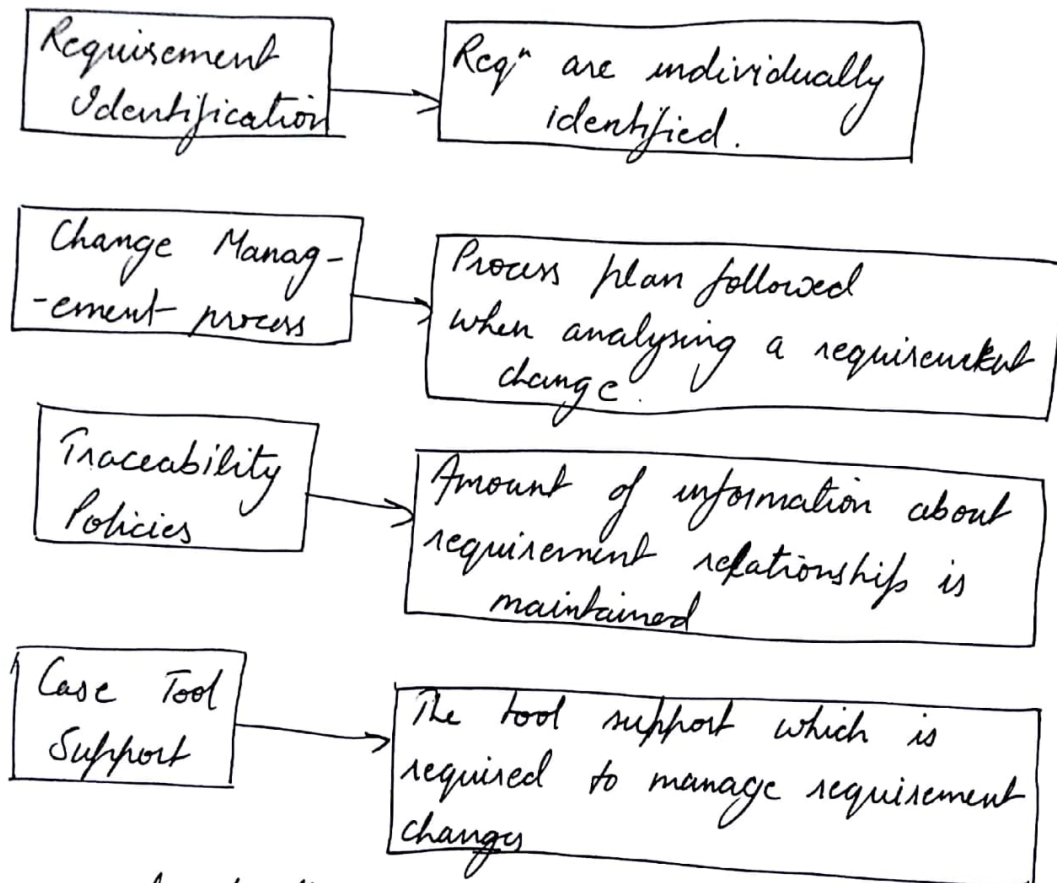 Requirement
Identification
Reqⁿ are individually
identified.
Change Manag-
-ement process
Process plan followed
when analysing a requirement
change.
Traceability
Policies
Amount of information about
requirement relationship is
maintained
Case Tool
Support
The tool support which is
required to manage requirement
changes